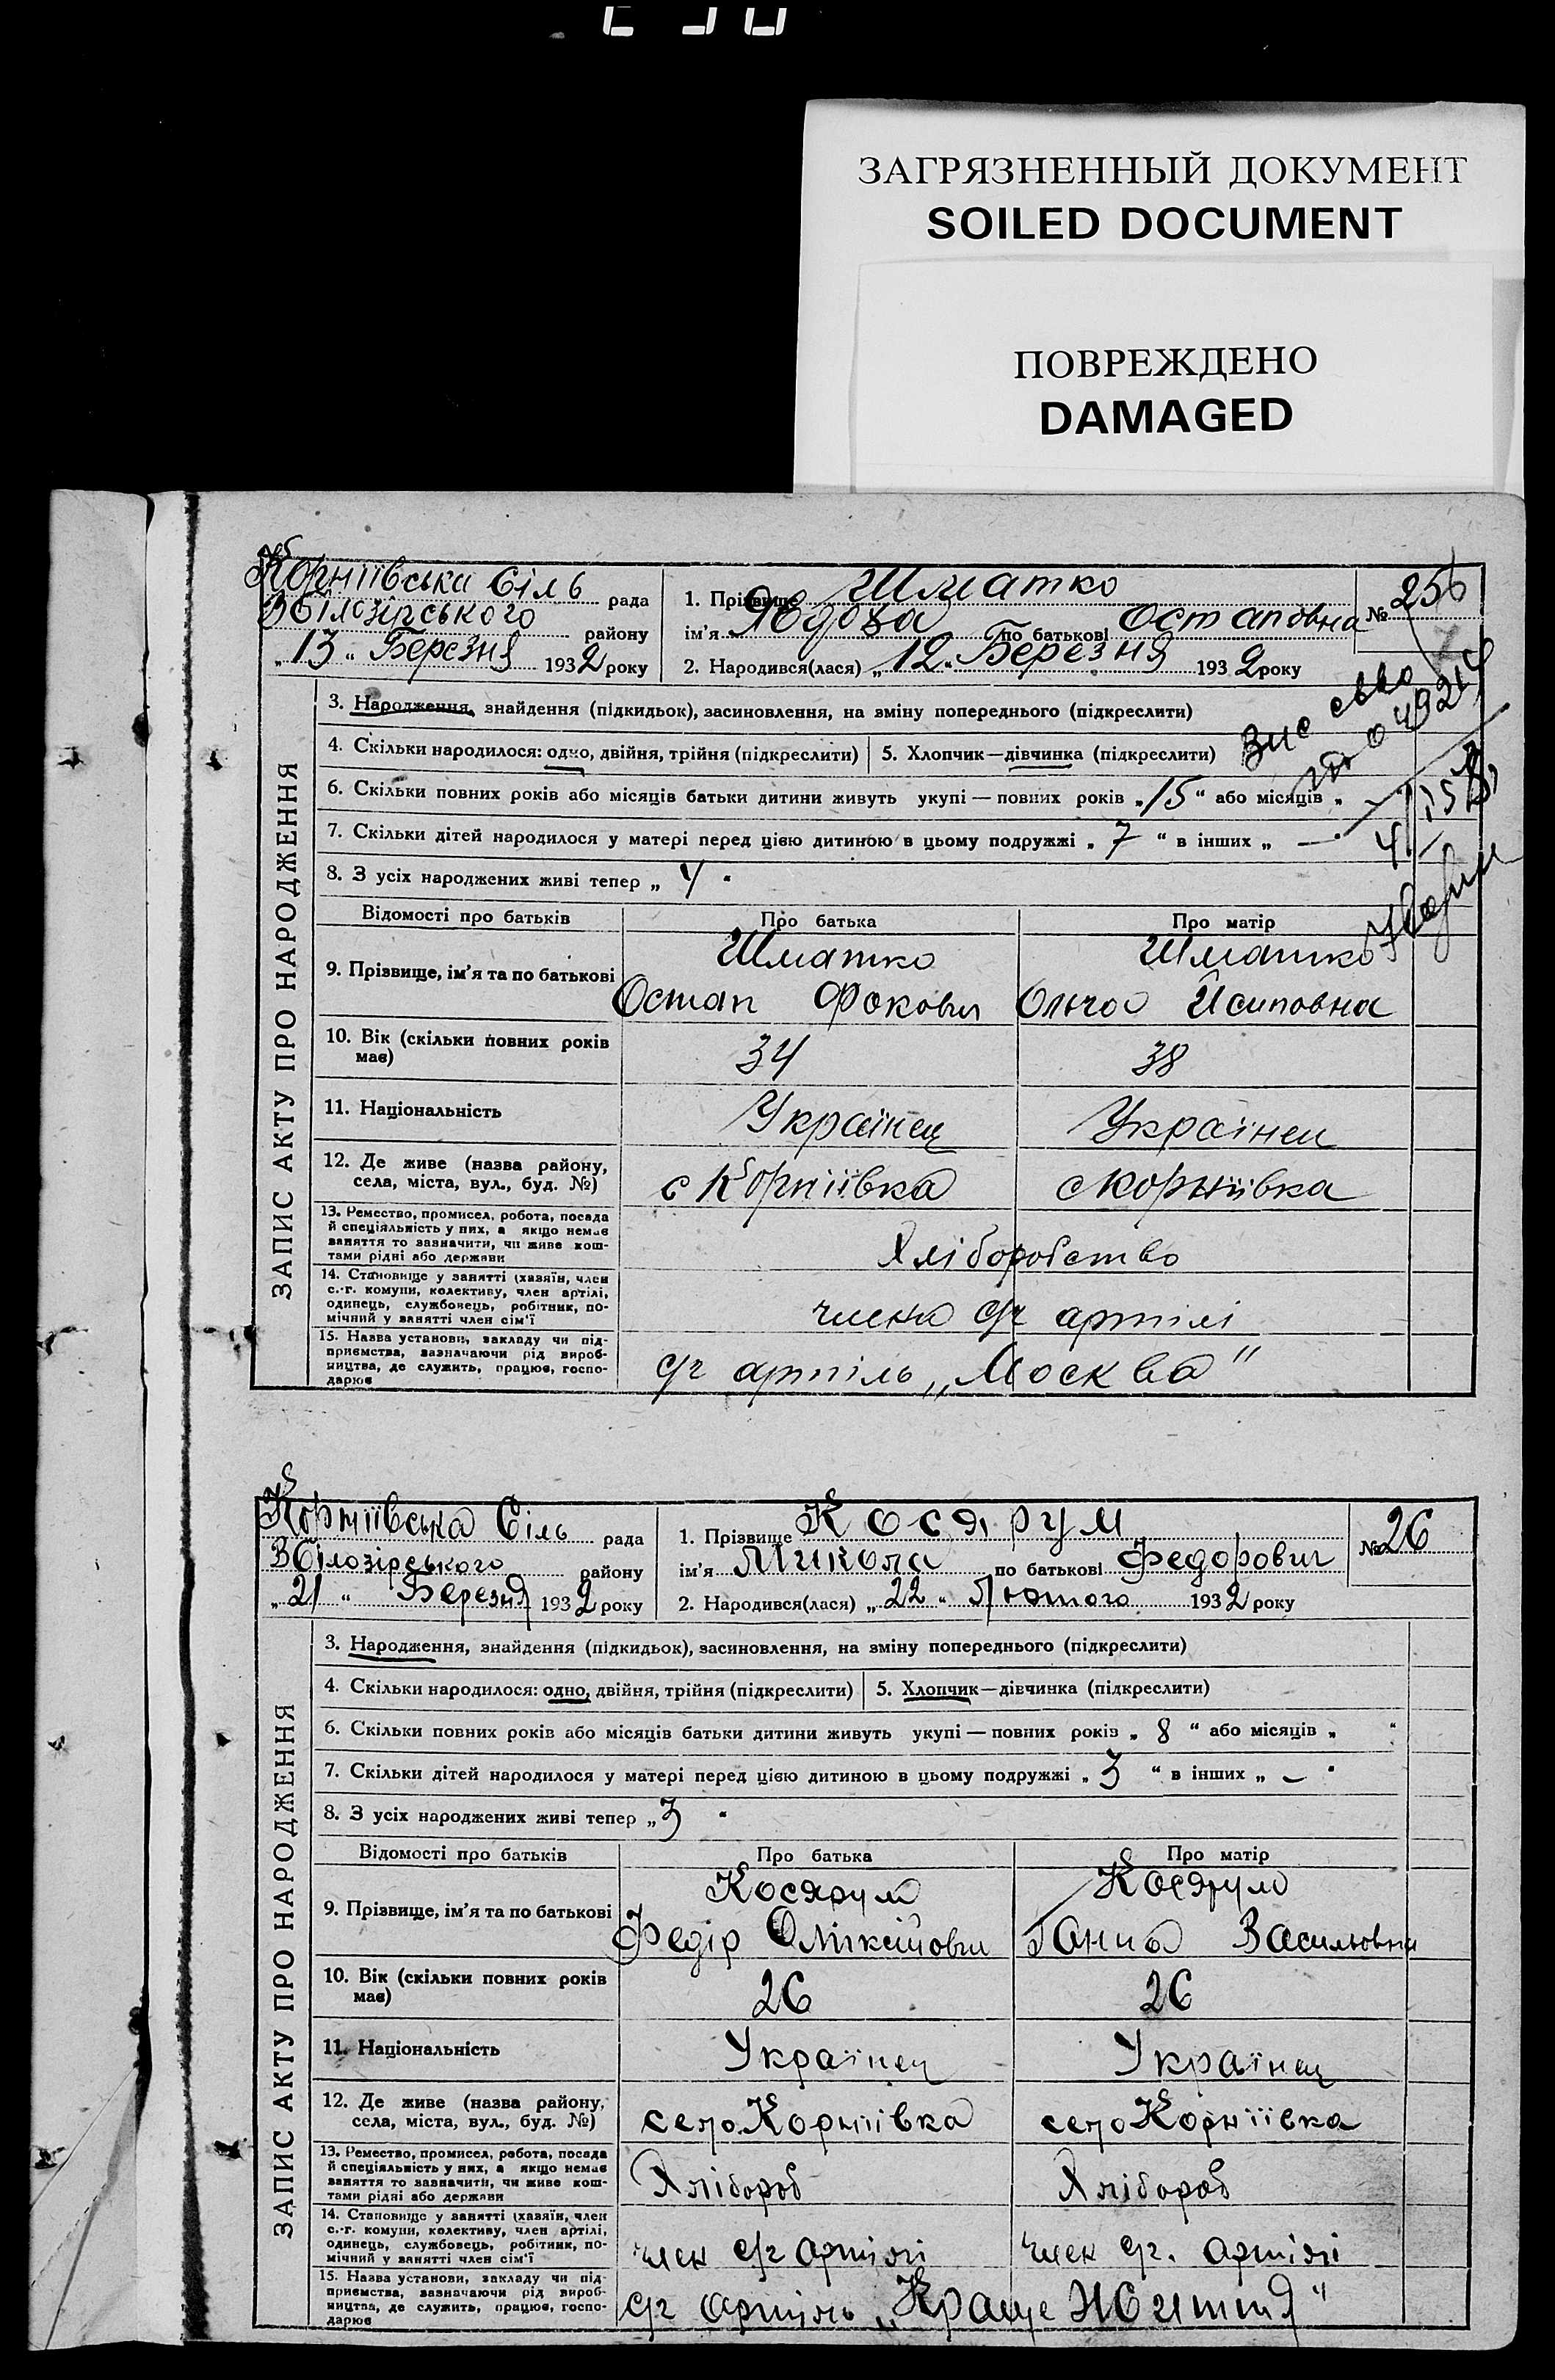 ЗАГРЯЗНЕННЫЙ ДОКУМЕНТ
SOILED DOCUMENT
ПОВРЕЖДЕНО
DAMAGED
ЗАПИС АКТУ ПРО НАРОДЖЕННЯ
Корніївська Сіль рада
Збілозірського району
„13“ Березня 1932 року
1. Прізвище Шматко
ім'я по батькові Остаповна
2. Народився(лася) „12“ Березня 1932 року
№ 25
3. Народження, знайдення (підкидьок), засиновлення, на зміну попереднього (підкреслити)
4. Скільки народилося: одно, двійня, трійня (підкреслити) 5. Хлопчик—дівчинка (підкреслити)
6. Скільки повних років або місяців батьки дитини живуть укупі — повних років „15“ або місяців „
7. Скільки дітей народилося у матері перед цією дитиною в цьому подружжі „7“ в інших „ —
8. З усіх народжених живі тепер „4“
Відомості про батьків Про батька Про матір
9. Прізвище, ім'я та по батькові
Шматко Шматко
Остап Фокович Ольга Йсиповна
10. Вік (скільки повних років має) 34 38
11. Національність Українец Українец
12. Де живе (назва району, села, міста, вул., буд. №) с Корніївка с Корніївка
13. Ремество, промисел, робота, посада й спеціяльність у них, а якщо немає заняття то зазначити, чи живе коштами рідні або держави
Хліборобство
14. Становище у занятті (хазяїн, член с.-г. комуни, колективу, член артілі, одинець, службовець, робітник, помічний у занятті член сім'ї
члена с/г артілі
15. Назва установи, закладу чи підприємства, зазначаючи рід виробництва, де служить, працює, господарює
с/г артіль „Москва“
ЗАПИС АКТУ ПРО НАРОДЖЕННЯ
Корніївська Сіль рада
Збілозірського району
„21“ Березня 1932 року
1. Прізвище Косярум
ім'я Микола по батькові Федорович
2. Народився(лася) „22“ Лютого 1932 року
№ 26
3. Народження, знайдення (підкидьок), засиновлення, на зміну попереднього (підкреслити)
4. Скільки народилося: одно, двійня, трійня (підкреслити) 5. Хлопчик—дівчинка (підкреслити)
6. Скільки повних років або місяців батьки дитини живуть укупі — повних років „8“ або місяців „ “
7. Скільки дітей народилося у матері перед цією дитиною в цьому подружжі „3“ в інших „ — “
8. З усіх народжених живі тепер „3“
Відомості про батьків Про батька Про матір
9. Прізвище, ім'я та по батькові
Косярум Косярум
Федір Василювна
10. Вік (скільки повних років має) 26 26
11. Національність Українец Українец
12. Де живе (назва району, села, міста, вул., буд. №) село Корніївка село Корніївка
13. Ремество, промисел, робота, посада й спеціяльність у них, а якщо немає заняття то зазначити, чи живе коштами рідні або держави
Хлібороб Хлібороб
14. Становище у занятті (хазяїн, член с.-г. комуни, колективу, член артілі, одинець, службовець, робітник, помічний у занятті член сім'ї
член с/г артілі член с/г. артілі
15. Назва установи, закладу чи підприємства, зазначаючи рід виробництва, де служить, працює, господарює
с/г артіль „Краще Життя“